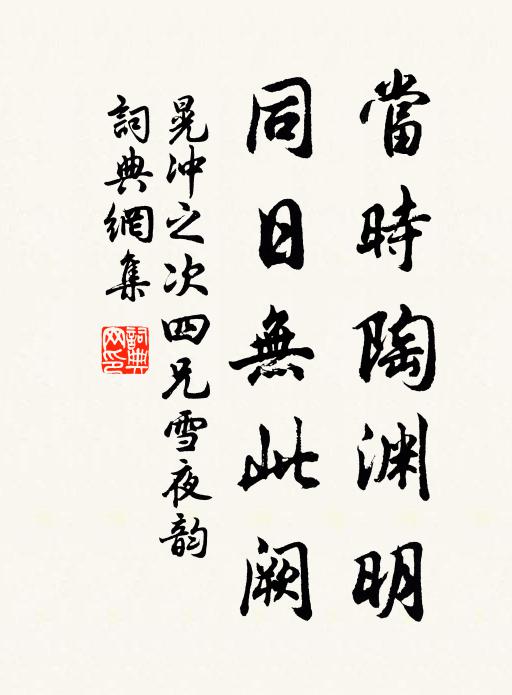 當時陶渊明
同日無此阙
晃沖之次四兄雪夜韵
詞典網集
詞典网印